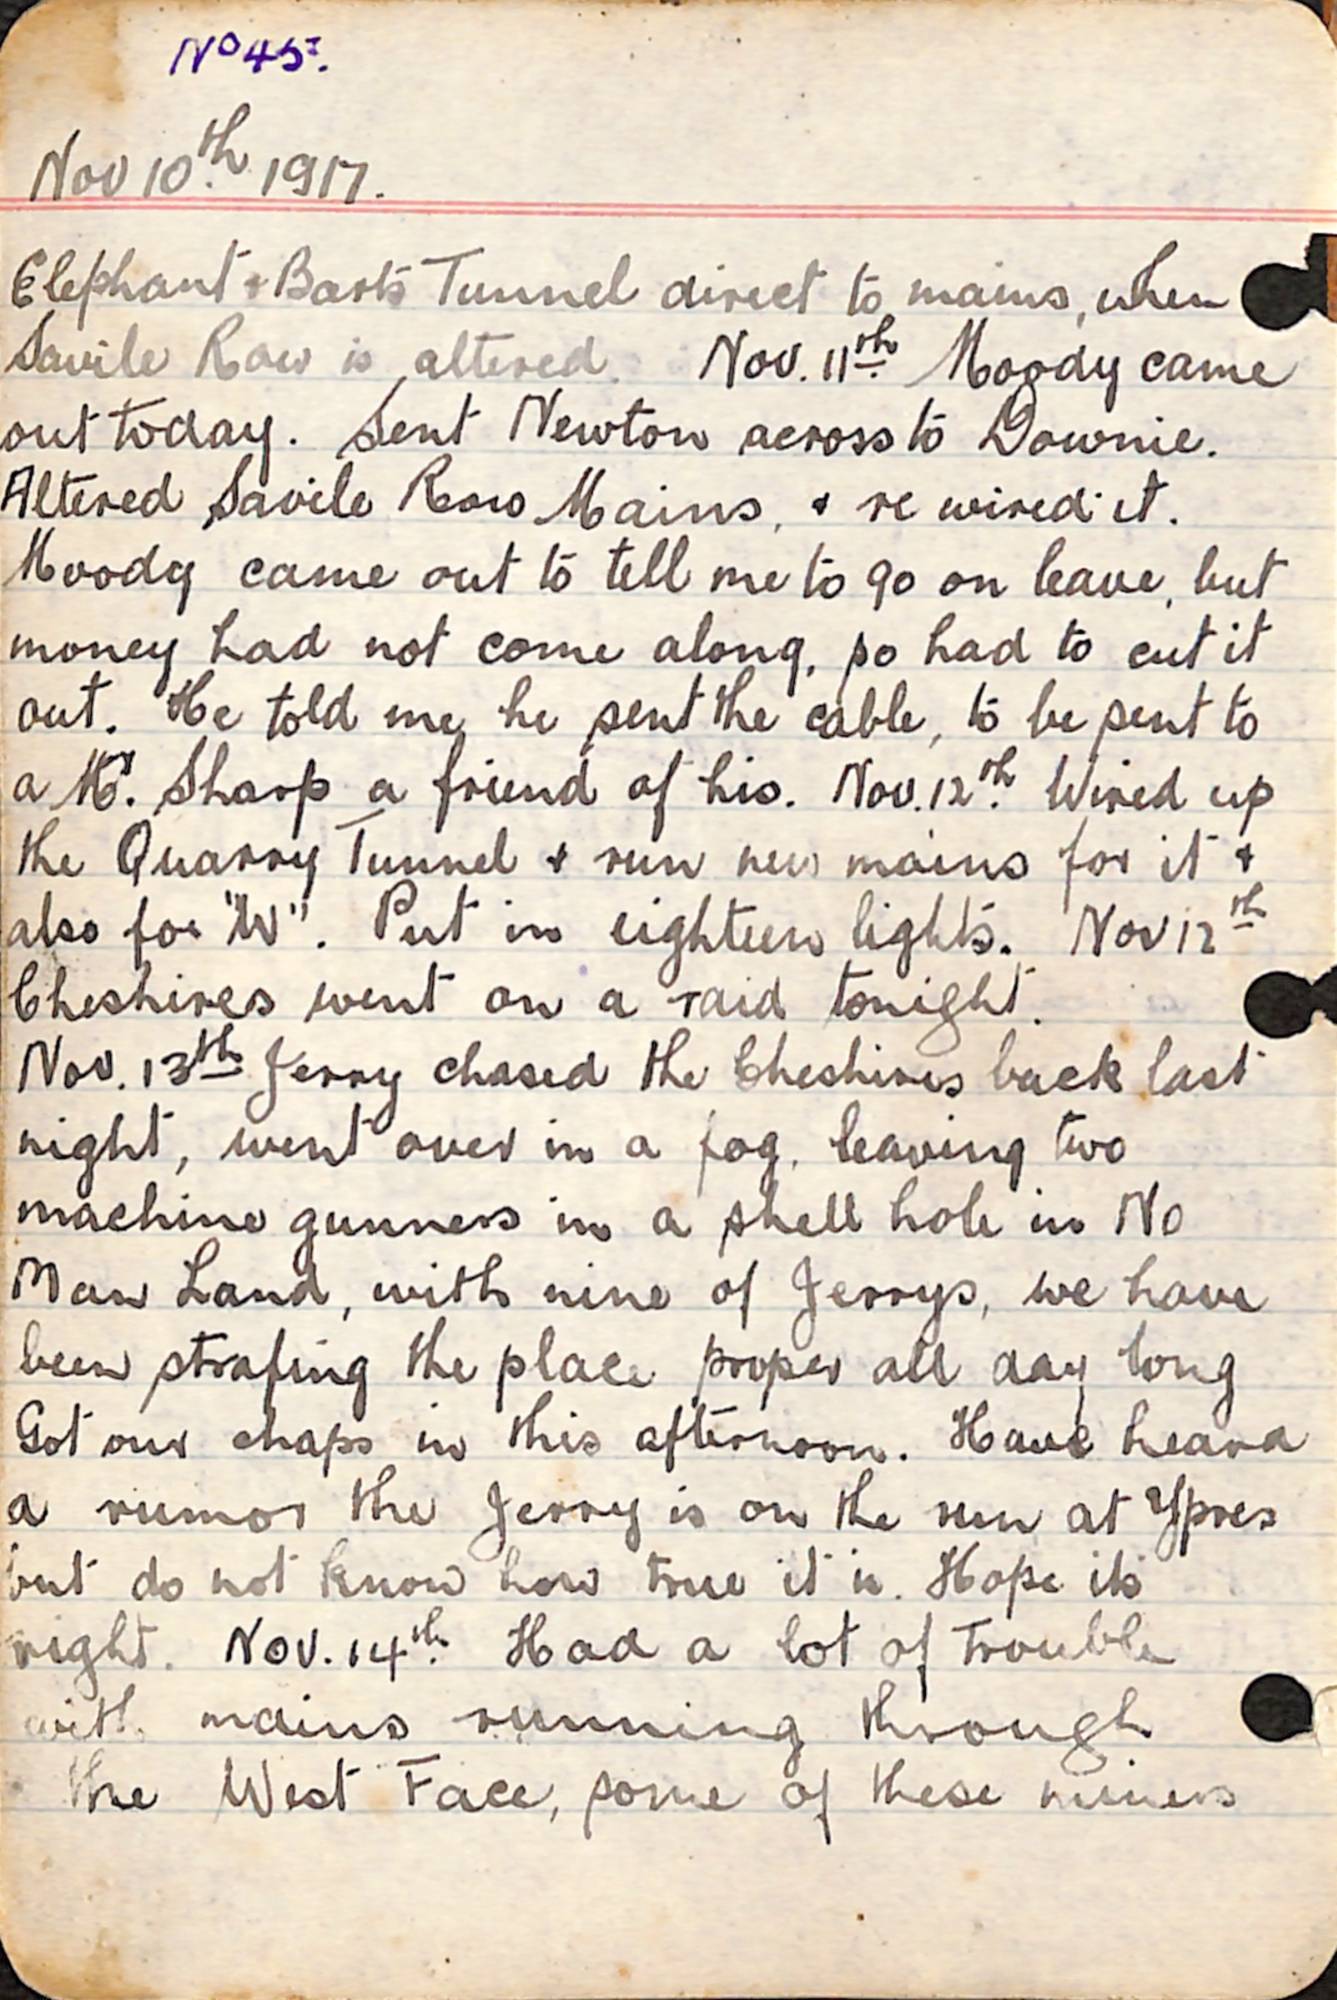 No 45.
Nov 10th 1917.
Elephant & Barts Tunnel direct to mains, when
Savile Row is altered. Nov. 11th Moody came
out today. Sent Newton across to Downie.
Altered Savile Row Mains, & re wired it.
Moody came out to tell me to go on leave, but
money had not come along, so had to cut it
out. He told me he sent the cable, to be sent to
a Mr. Sharp a friend of his. Nov. 12th. Wired up
the Quarry Tunnel & run new mains for it &
also for "W". Put in eighteen lights. Nov 12th
Cheshires went on a raid tonight.
Nov. 13th Jerry chased the Cheshires back last
night, went over in a fog, leaving two
machine gunners in a shell hole in No
Man Land, with nine of Jerrys, we have
been strafing the place proper all day long
Got our chaps in this afternoon. Have heard
a rumor the Jerry is on the run at Ypres
but do not know how true it is. Hope its
right. Nov. 14th. Had a lot of trouble
with mains running through
the West Face, some of these miners